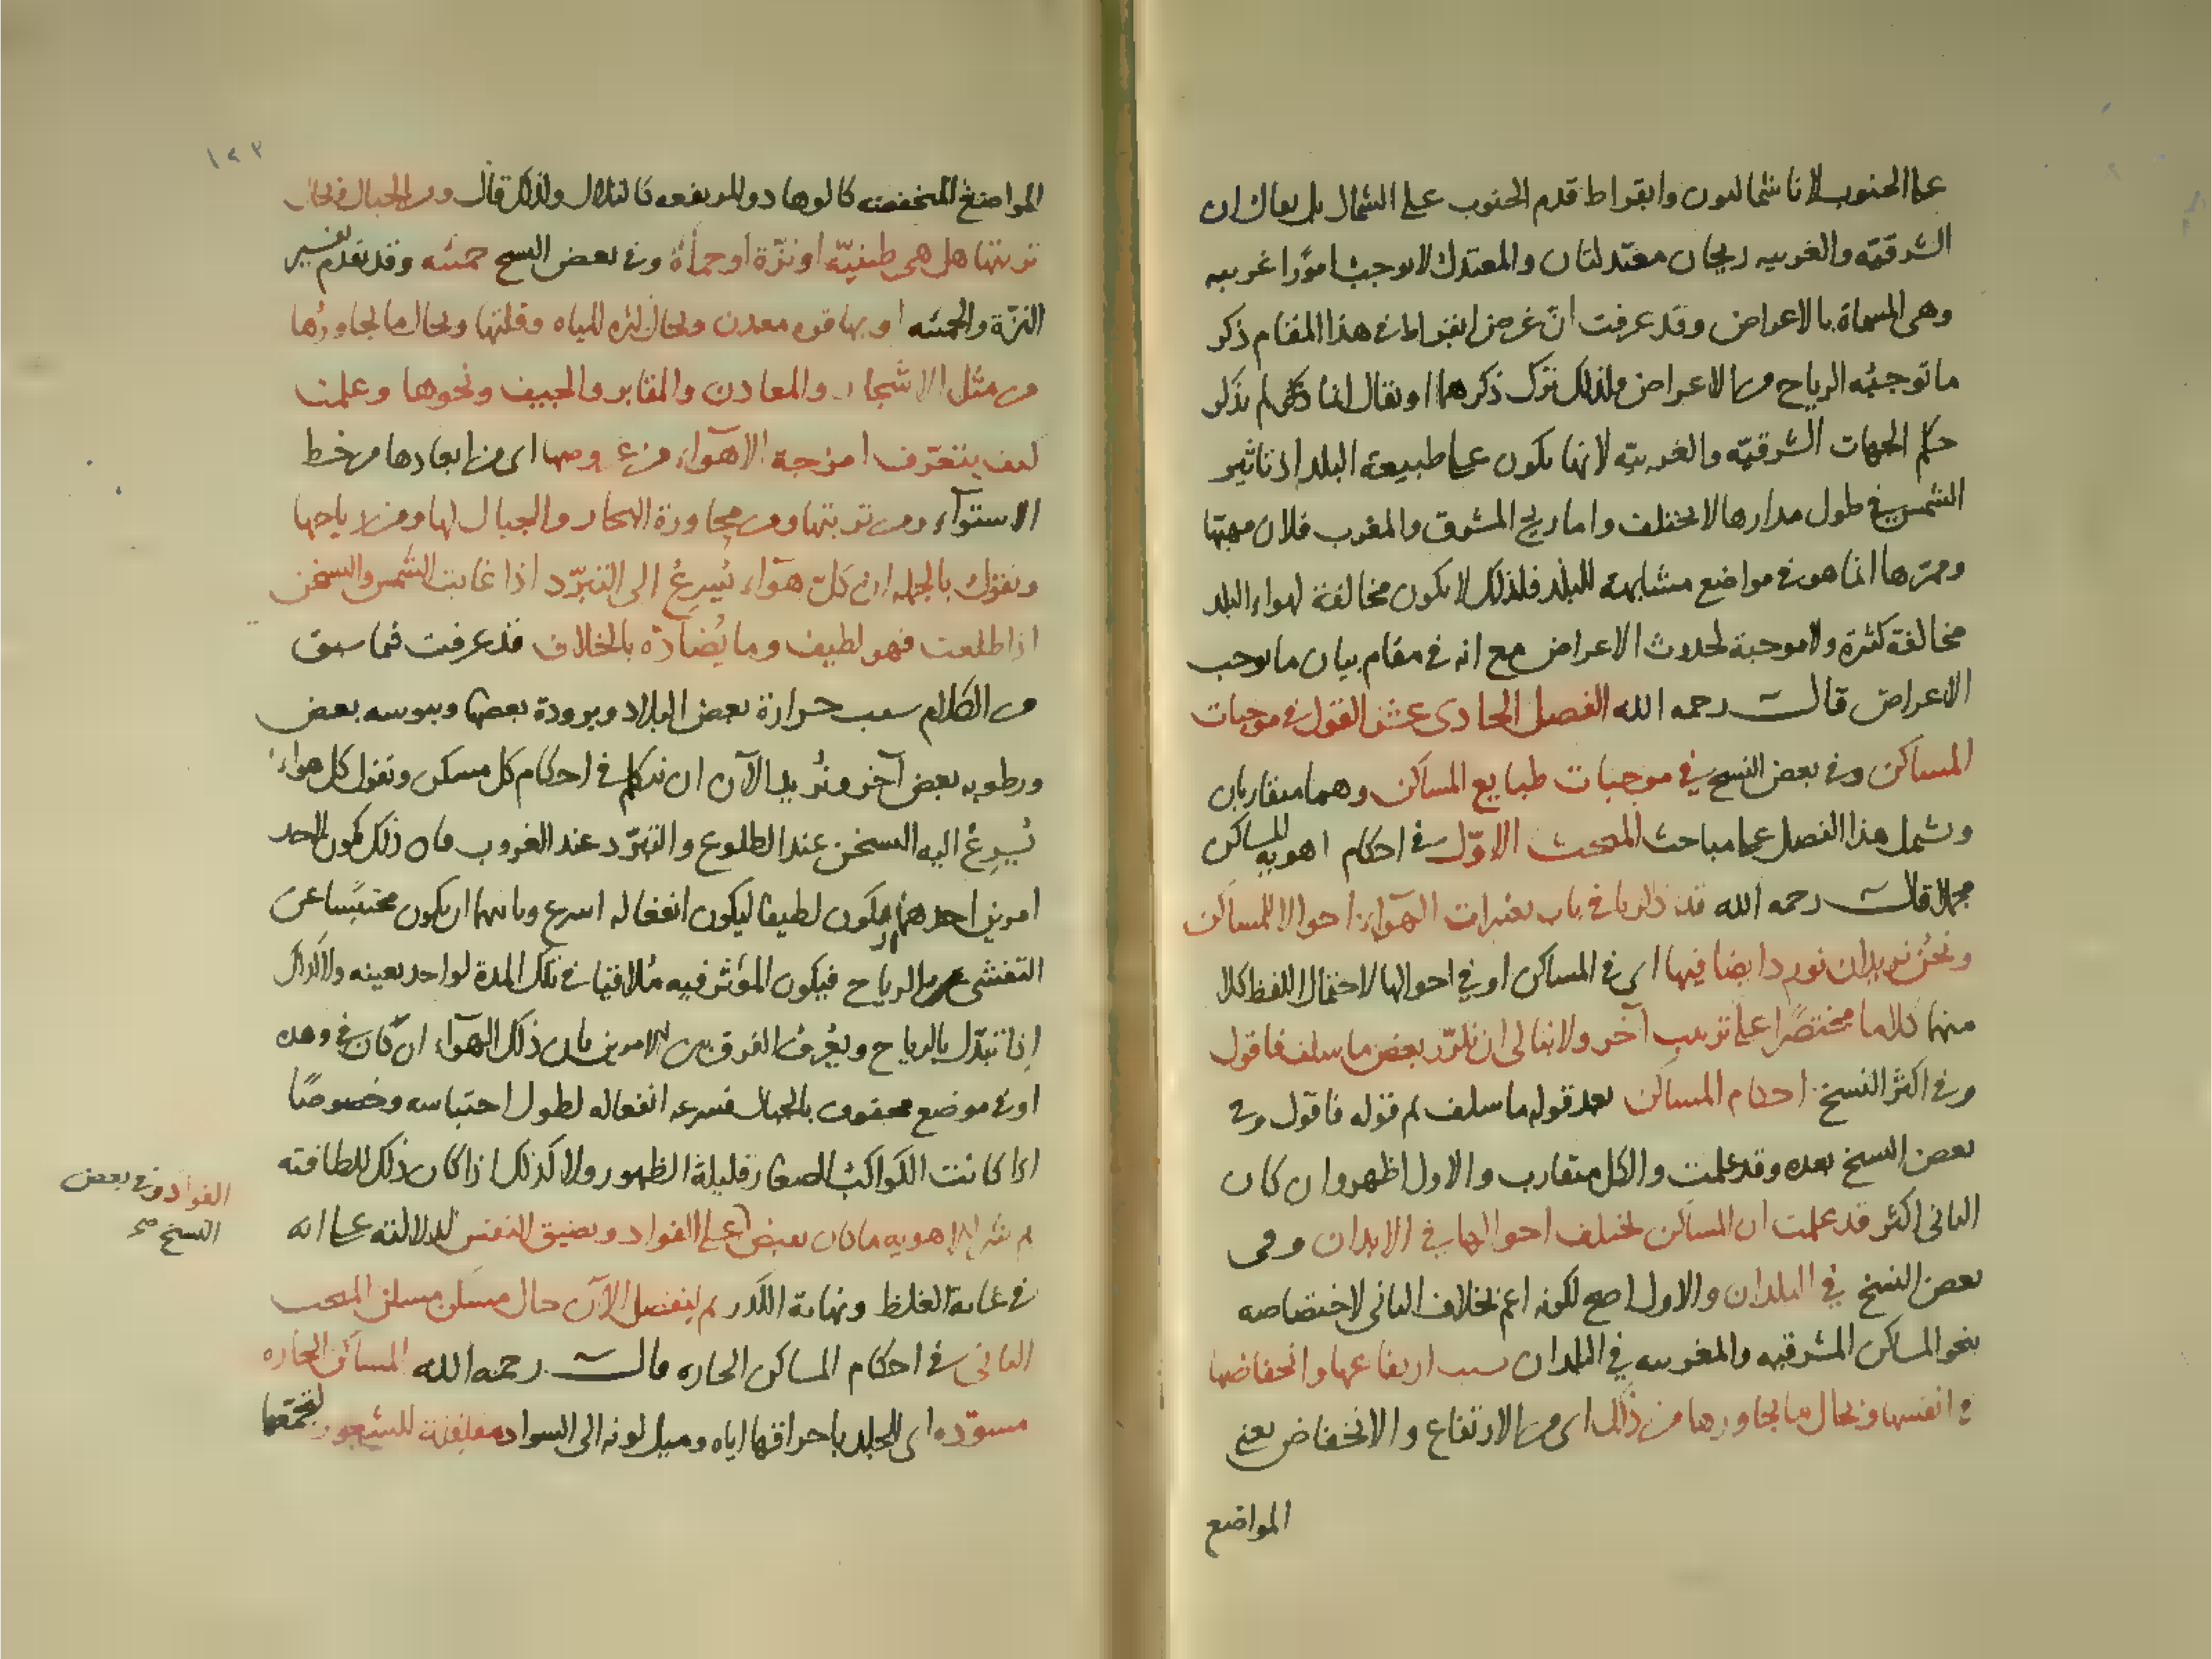 على الجنوب لانا شماليون وابقراط قدم الجنوب على الشمال بل يقال ان
الشرقيّه والغربيه ريحان معتدلتان والمعتدل لا يوجب امورًا غريبه
وهى المسماة بالاعراض وقد عرفت انّ غرض ابقراط فى هذا المقام ذكر
ما توجبُه الرياح من الاعراض فلذلك ترك ذكرهما او يقال انما لم يذكر
حكم الجهات الشرقيّه والغربيّه لانها يكون على طبيعة البلد اذ تاثير
الشمس فى طول مدارها لا يختلف واما ريح المشرق والمغرب فلان مهبّها
وممرّها انما هو فى مواضع مشابهة للبلد فلذلك لا يكون مخالفة لهواء البلد
مخالفة كثيرة ولا موجبة لحدوث الاعراض مع انه فى مقام بيان ما يوجب
الاعراض قال رحمه الله الفصل الحادى عشر القول فى موجبات
المساكن وفى بعض النسخ فى موجبات طبايع المساكن وهما متقاربان
ويشمل هذا الفصل على مباحث المبحث الاوّل فى احكام اهوية المساكن
مجملا قال رحمه الله قد ذكرنا فى باب تغيرات الهوآء احوالا للمساكن
ونحن نريد ان نورد ايضا فيها اى فى المساكن او فى احوالها لاحتمال اللفظ كلا
منهما كلاما مختصًرا على ترتيب آخر ولا نبالى ان نكرّر بعض ما سلف فاقول
وفى اكثر النسخ احكام المساكن بعد قوله ما سلف ثم قوله فاقول وفى
بعض النسخ بعده وقد علمت والكل متقارب والاول اظهر وان كان
الثانى اكثر قد علمت ان المساكن تختلف احوالها فى الابدان وفى
بعض النسخ فى البلدان والاول اصح لكونه اعم بخلاف الثانى لاختصاصه
بنحو المساكن المشرقيه والمغربيه فى البلدان بسبب ارتفاعها وانخفاضها
فى انفسها وبحال ما يجاورها من ذلك اى من الارتفاع والانخفاض يعنى
المواضع
١٢٣
المواضع المنخفضه كالوهاد والمرتفعه كالتلال ولذلك قال ومن الجبال وبحال
تربتها هل هى طينيّه او نزّة او حمأة وفى بعض النسخ حمئه وقد تقدم تفسير
النزّة والحمئه او بها قوة معدن وبحال كثرة المياه وقلتها وبحال ما يجاورُها
من مثل الاشجار والمعادن والمقابر والجيف ونحوها وعلمت
كيف يتعرّف امزجة الاهوآء من عروضها اى من ابعادها من خط
الاستوآء ومن تربتها ومن مجاورة البحار والجبال لها ومن رياحها
ونقول بالجمله ان كلّ هوآء يُسرِعُ الى التبرّد اذا غابت الشمس والتسخن
اذا طلعت فهو لطيف وما يُضادّه بالخلاف قد عرفت فيما سبق
من الكلام سبب حرارة بعض البلاد وبرودة بعضها ويبوسه بعض
ورطوبه بعض آخر ونُريد الآن ان نتكلم فى احكام كل مسكن ونقول كل هواء
يُسرِعُ اليه التسخن عند الطلوع والتبرّد عند الغروب فان ذلك يكون لاحد
امرين احدهما ان يكون لطيفا ليكون انفعاله اسرع وثانيهما ان يكون محتبسًا عن
التفشى بالرياح فيكون المؤثر فيه مُلاقيا فى تلك المدة لواحد بعينه ولا كذلك
اِذا تبدّل بالرياح ويُعرفُ الفرق بين الامرين بان ذلك الهوآء ان كان فى وهده
او فى موضع محفوف بالجبال فسرعة انفعاله لطول احتباسه وخصوصًا
اذا كانت الكواكب الصغار قليلة الظهور والا كذلك اذا كان ذلك للطافته
ثم شرّ الاهويه ما كان يقبض على الفواد ويضيق النفس لدلالته على انه
فى غاية الغلظ ونهاية الكدر ثم لنفصل الآن حال مسكن مسكن المبحث
الثانى فى احكام المساكن الحاره قال رحمه الله المساكن الحاره
مسوّده اى للجلد باحراقها اياه وميل لونه الى السواد مفلفلة للشعور لتجمّعها
الفواد وفى بعض
النسخ صح